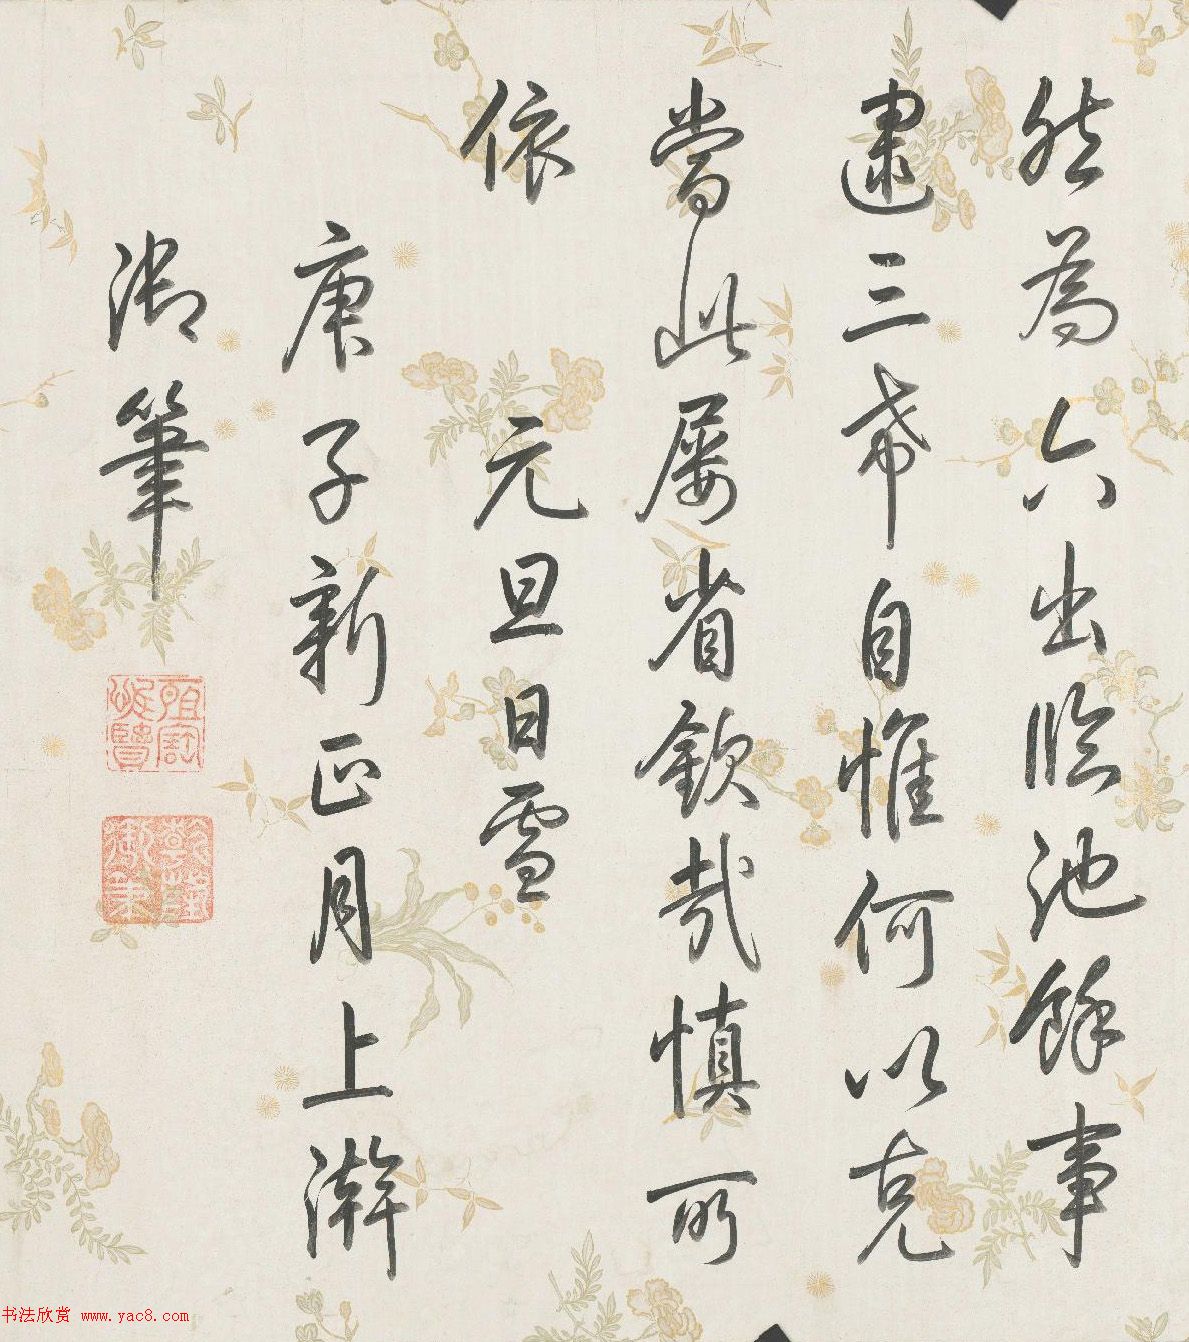 然為六出臨池餘事
逮三希自惟何以克
當此屢省欽哉慎所
依
元旦日雪
庚子新正月上澣
御筆
書法欣赏 www.yac8.com